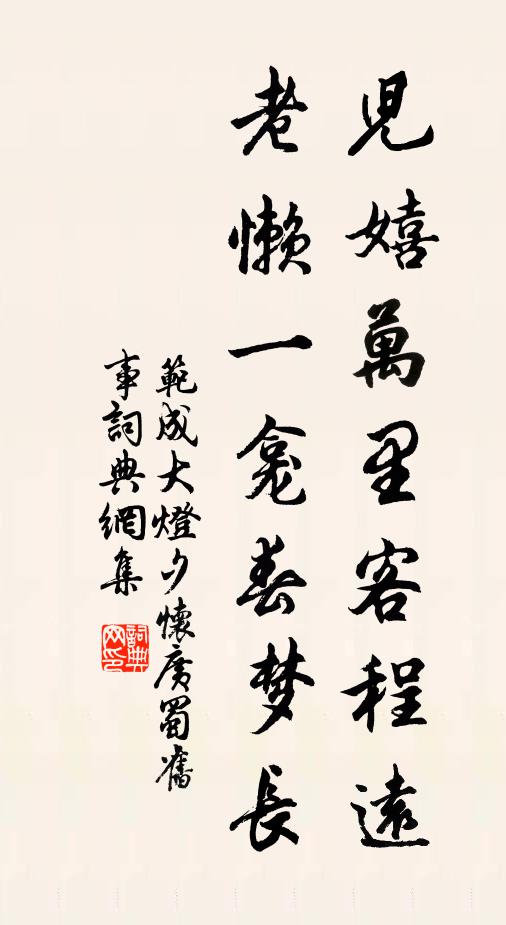 児嬉萬里客程遠
老懒一龛春梦長
範成大燈夕懷廣蜀舊
事詞典網集
詞典网印